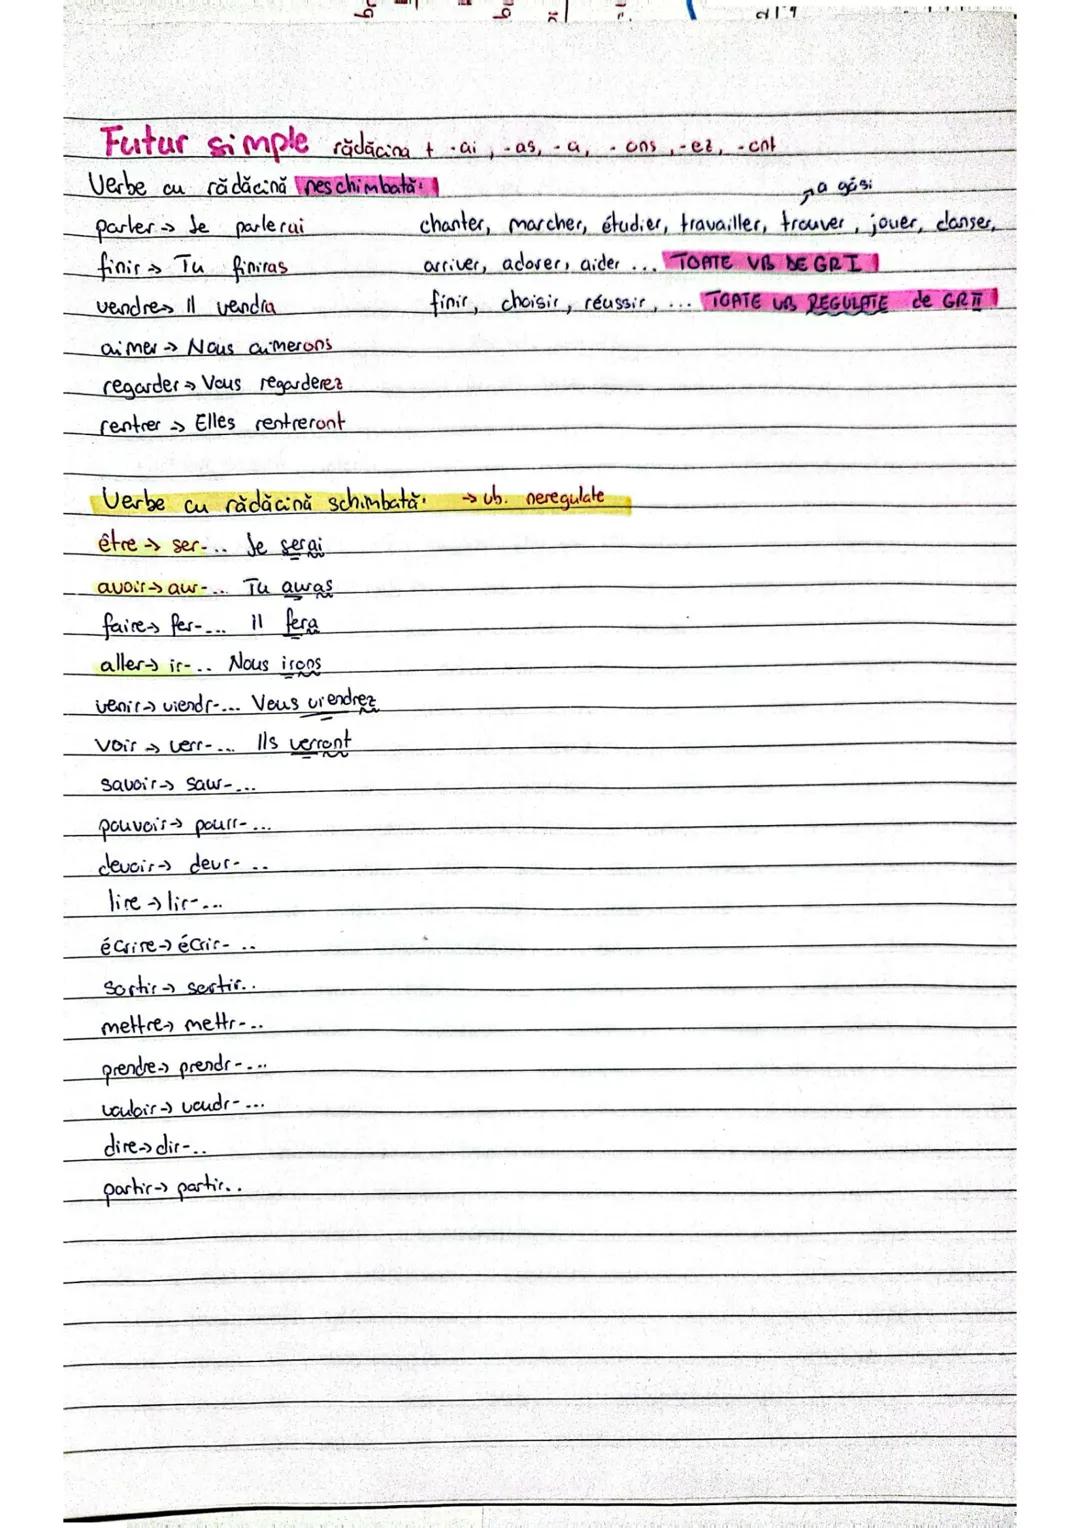 Futur simple rădăcina + -ai, -as, -a, -ons, -ez, -ont
Verbe cu rădăcină neschimbată:
→ a găsi
parler → Je parlerai chanter, marcher, étudier, travailler, trouver, jouer, danser,
finir → Tu finiras arriver, adorer, aider ... TOATE VB DE GR I
vendre → Il vendra finir, choisir, réussir, ... TOATE VB REGULATE de GR II
aimer → Nous aimerons
regarder → Vous regarderez
rentrer → Elles rentreront
Verbe cu rădăcină schimbată. → vb. neregulate
être → ser-... Je serai
avoir → aur-... Tu auras
faire → fer-... Il fera
aller → ir-... Nous irons
venir → viendr-... Vous viendrez
voir → verr-... Ils verront
savoir → saur-...
pouvoir → pourr-...
devoir → devr-...
lire → lir-...
écrire → écrir-...
sortir → sortir..
mettre → mettr-...
prendre → prendr-...
vouloir → voudr-...
dire → dir-..
partir → partir..